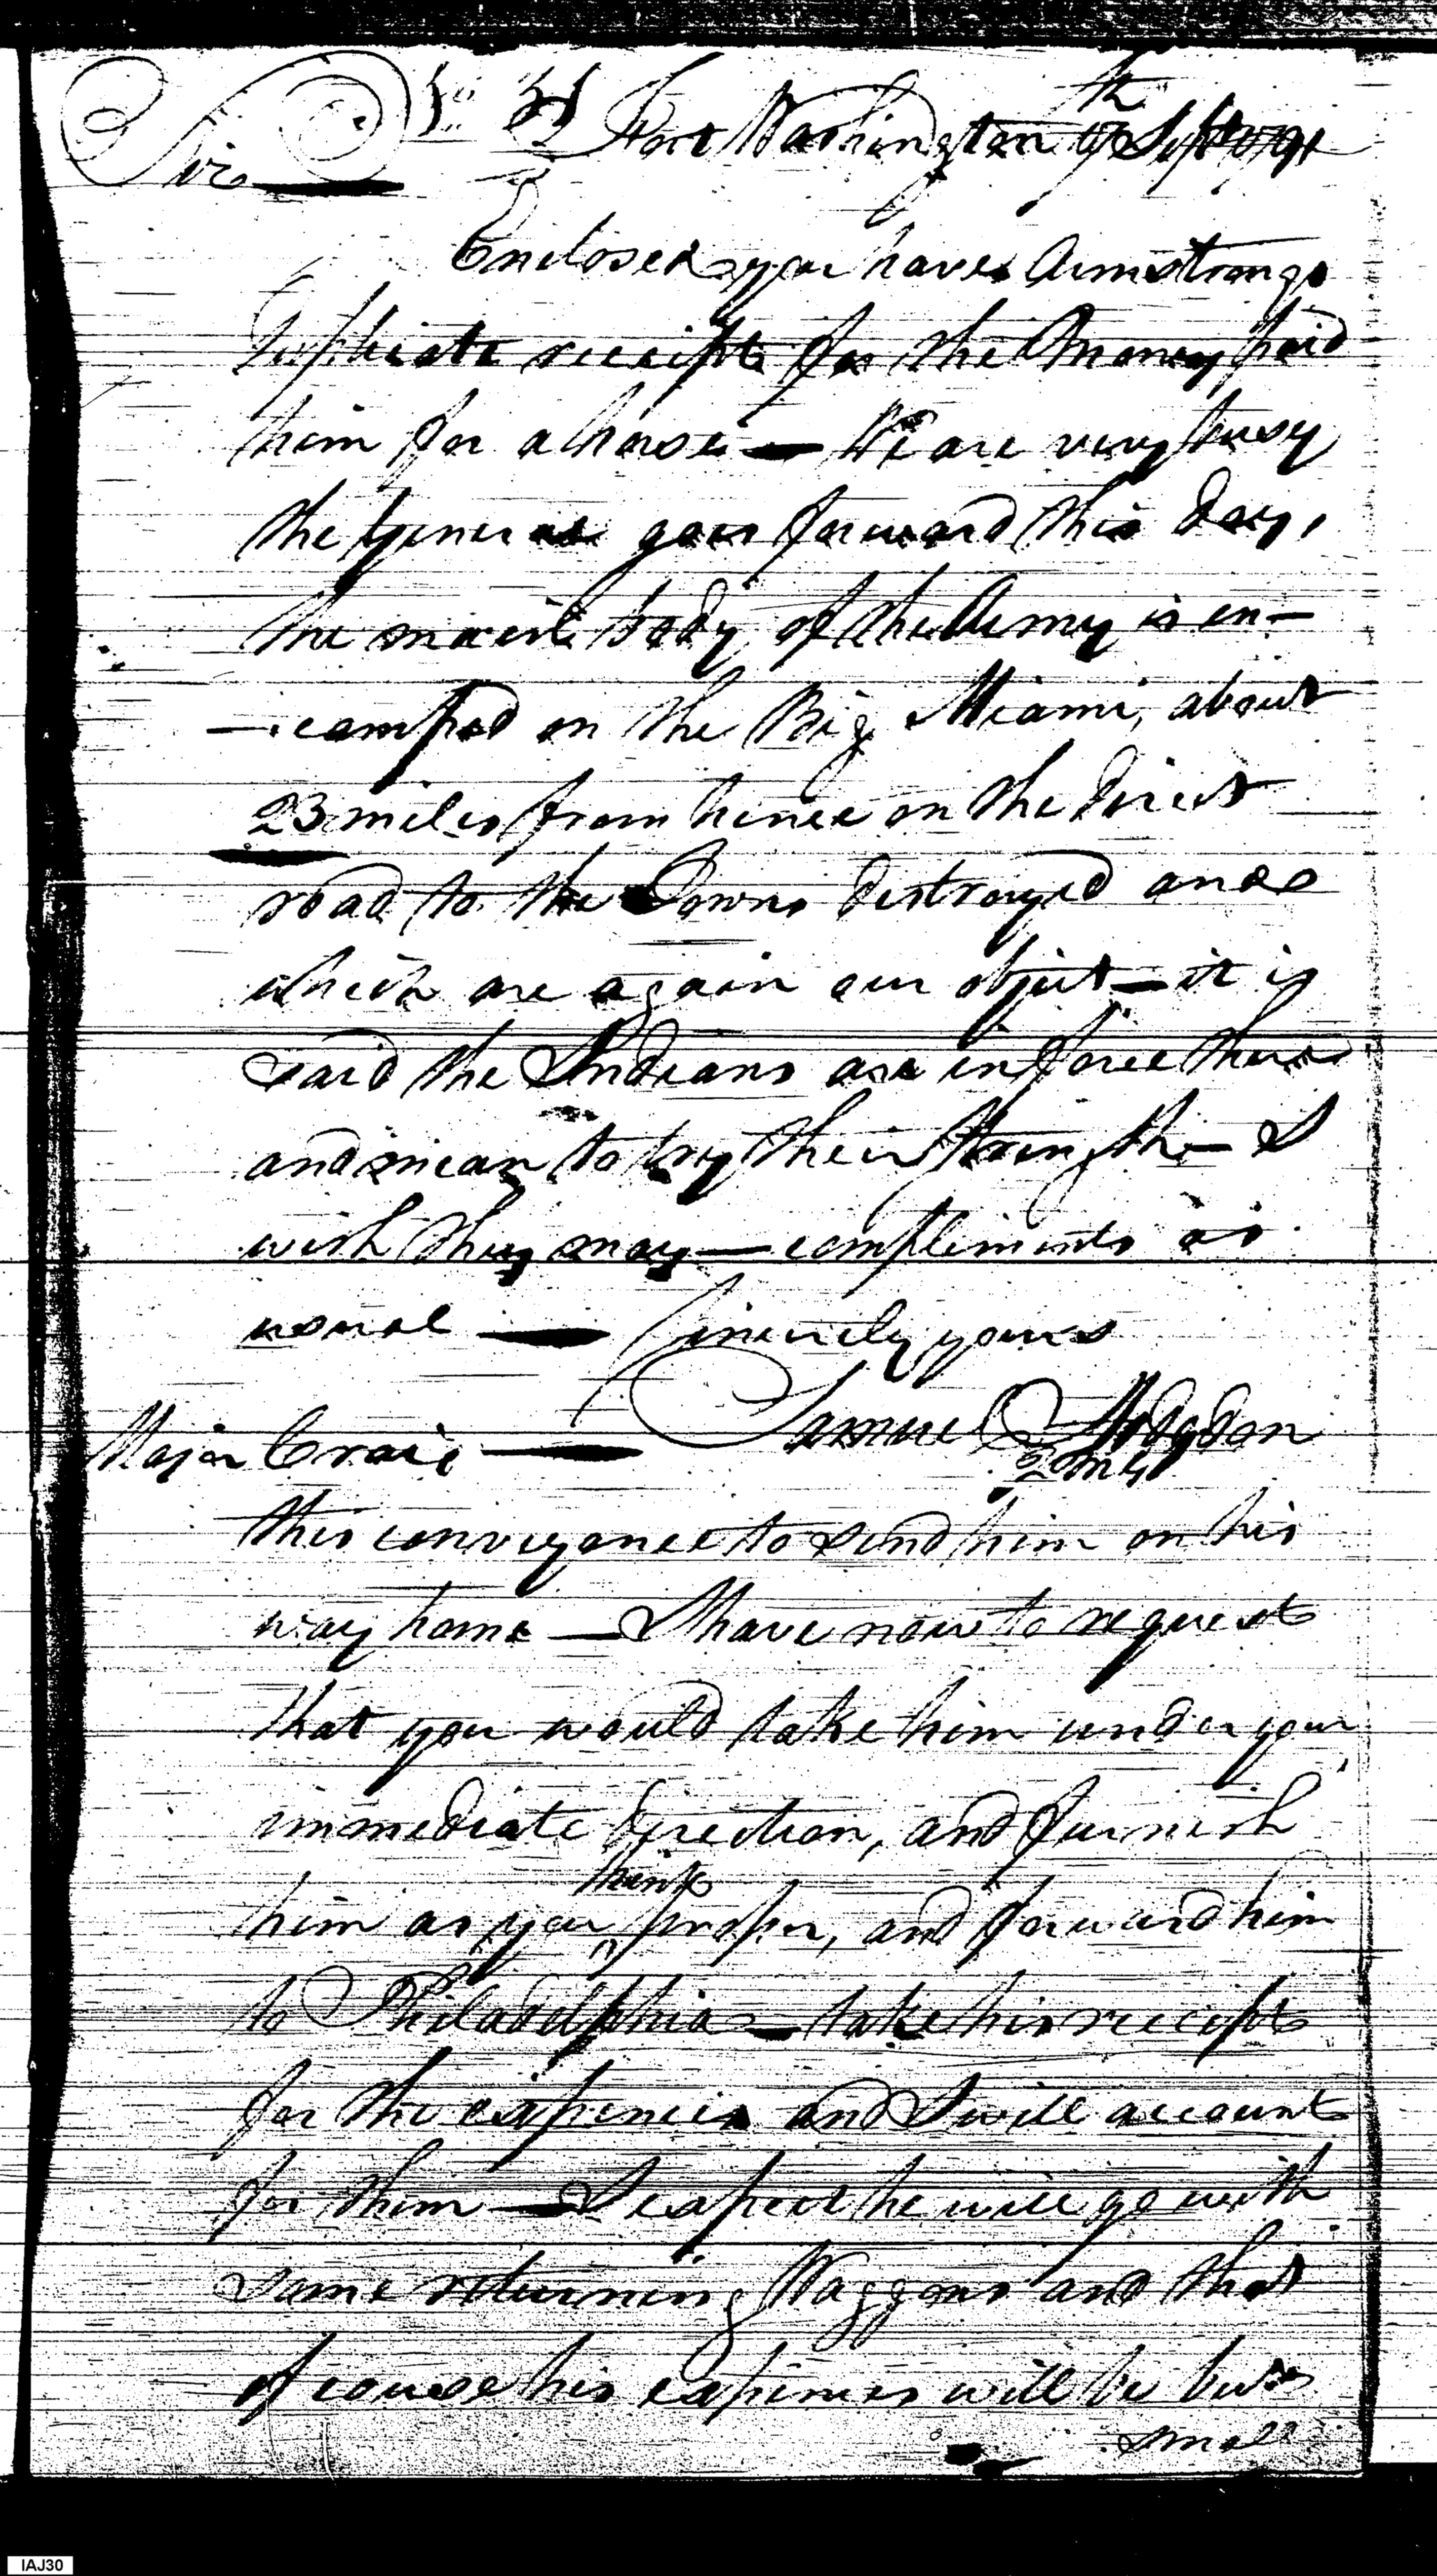 Sir No 31 Fort Washington 19th Sept 1791
Enclosed you have Armstrongs
Triplicate receipts for the Money paid
him for a horse — We are very busy
the General goes forward this day,
the main body of the Army is en—
—camped on the Big Miami, about
23 miles from hence on the direct
road to the Towns destroyed and
which are again our object — it is
said the Indians are in force there
and mean to try their strength — I
wish they may — compliments as
usual — Sincerely yours
Samuel Hodgdon
Major Craig — QMG
this conveyance to send him on his
way home — I have now to request
that you would take him under your
immediate direction, and furnish
think
him as you proper, and forward him
to Philadelphia — take his receipts
for the expences and I will account
for them — I expect he will go with
some returning Waggons and that
of course his expences will be but
small
IAJ30